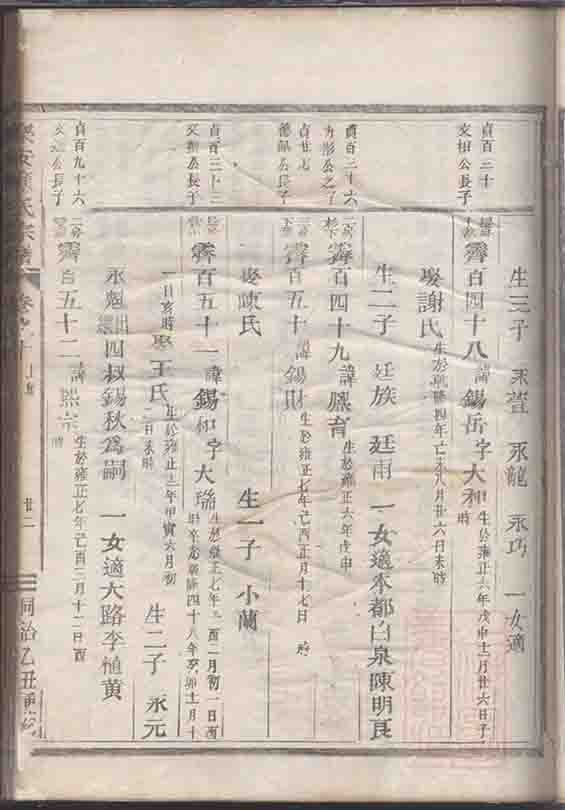 生三子 永萱 永龍 永巧 一女適
貞百三十
文祖公長子
霽百四十八 諱錫岳 字大和 生於雍正六年戊申十二月廿六日子時
娶謝氏 生於乾隆四年己未八月廿六日未時
生二子 廷族 廷雨 一女適本都白泉陳明良
貞百三十六
霽百四十九 諱熙育 生於雍正六年戊申
貞廿七
德 公長子
霽百五十 諱錫財 生於雍正七年己酉正月十七日 時
娶陳氏 生一子 小蘭
貞百三十二
文 公長子
霽百五十一 諱錫和 字大 生於雍正七年己酉二月初一日酉時卒於乾隆四十八年癸卯十二月十
一日亥時 娶王氏 生於雍正十二年甲寅六月初 日未時 生二子 永元
永 四叔錫秋爲嗣 一女適大路李植黄
貞百九十六
文 公長子
霽百五十二 諱熙宗 生於雍正七年己酉二月十二日酉時
樂安 氏宗譜 卷 十 廿二 同治乙丑重